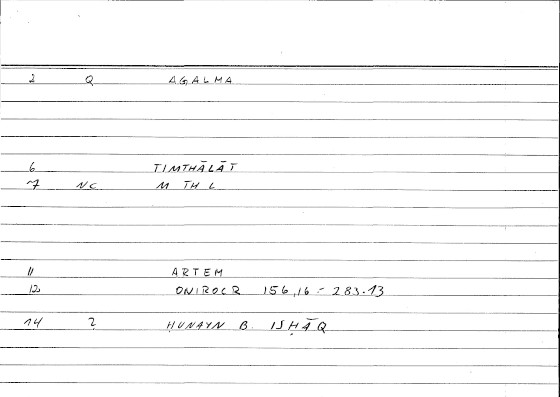 2 Q AGALMA
6 TIMTHĀLĀT
7 NC M TH L
11 ARTEM
12 ONIROCR 156,16 = 283.13
14 2 ḤUNAYN B. ISḤĀQ